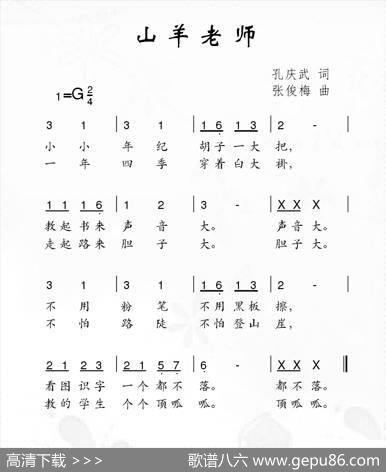 山羊老师
孔庆武 词
张俊梅 曲
1=G 2/4
3 1 | 3 1 | 1 6 1 3 | 2 - |
小 小 年 纪 胡子一大 把,
一 年 四 季 穿着白大 褂,
1 1 1 6 | 1 2 | 3 - | X X X |
教起书来 声 音 大。 声音大。
走起路来 胆 子 大。 胆子大。
3 1 | 3 1 | 1 6 1 3 | 2 - |
不 用 粉 笔 不用黑板 擦,
不 怕 路 陡 不怕登山 崖,
2 1 2 3 | 2 1 5 7 | 6 - | X X X ‖
看图识字 一个都不 落。 都不落。
教的学生 个个顶呱 呱。 顶呱呱。
高清下载 >>>
歌谱八六 www.gepu86.com